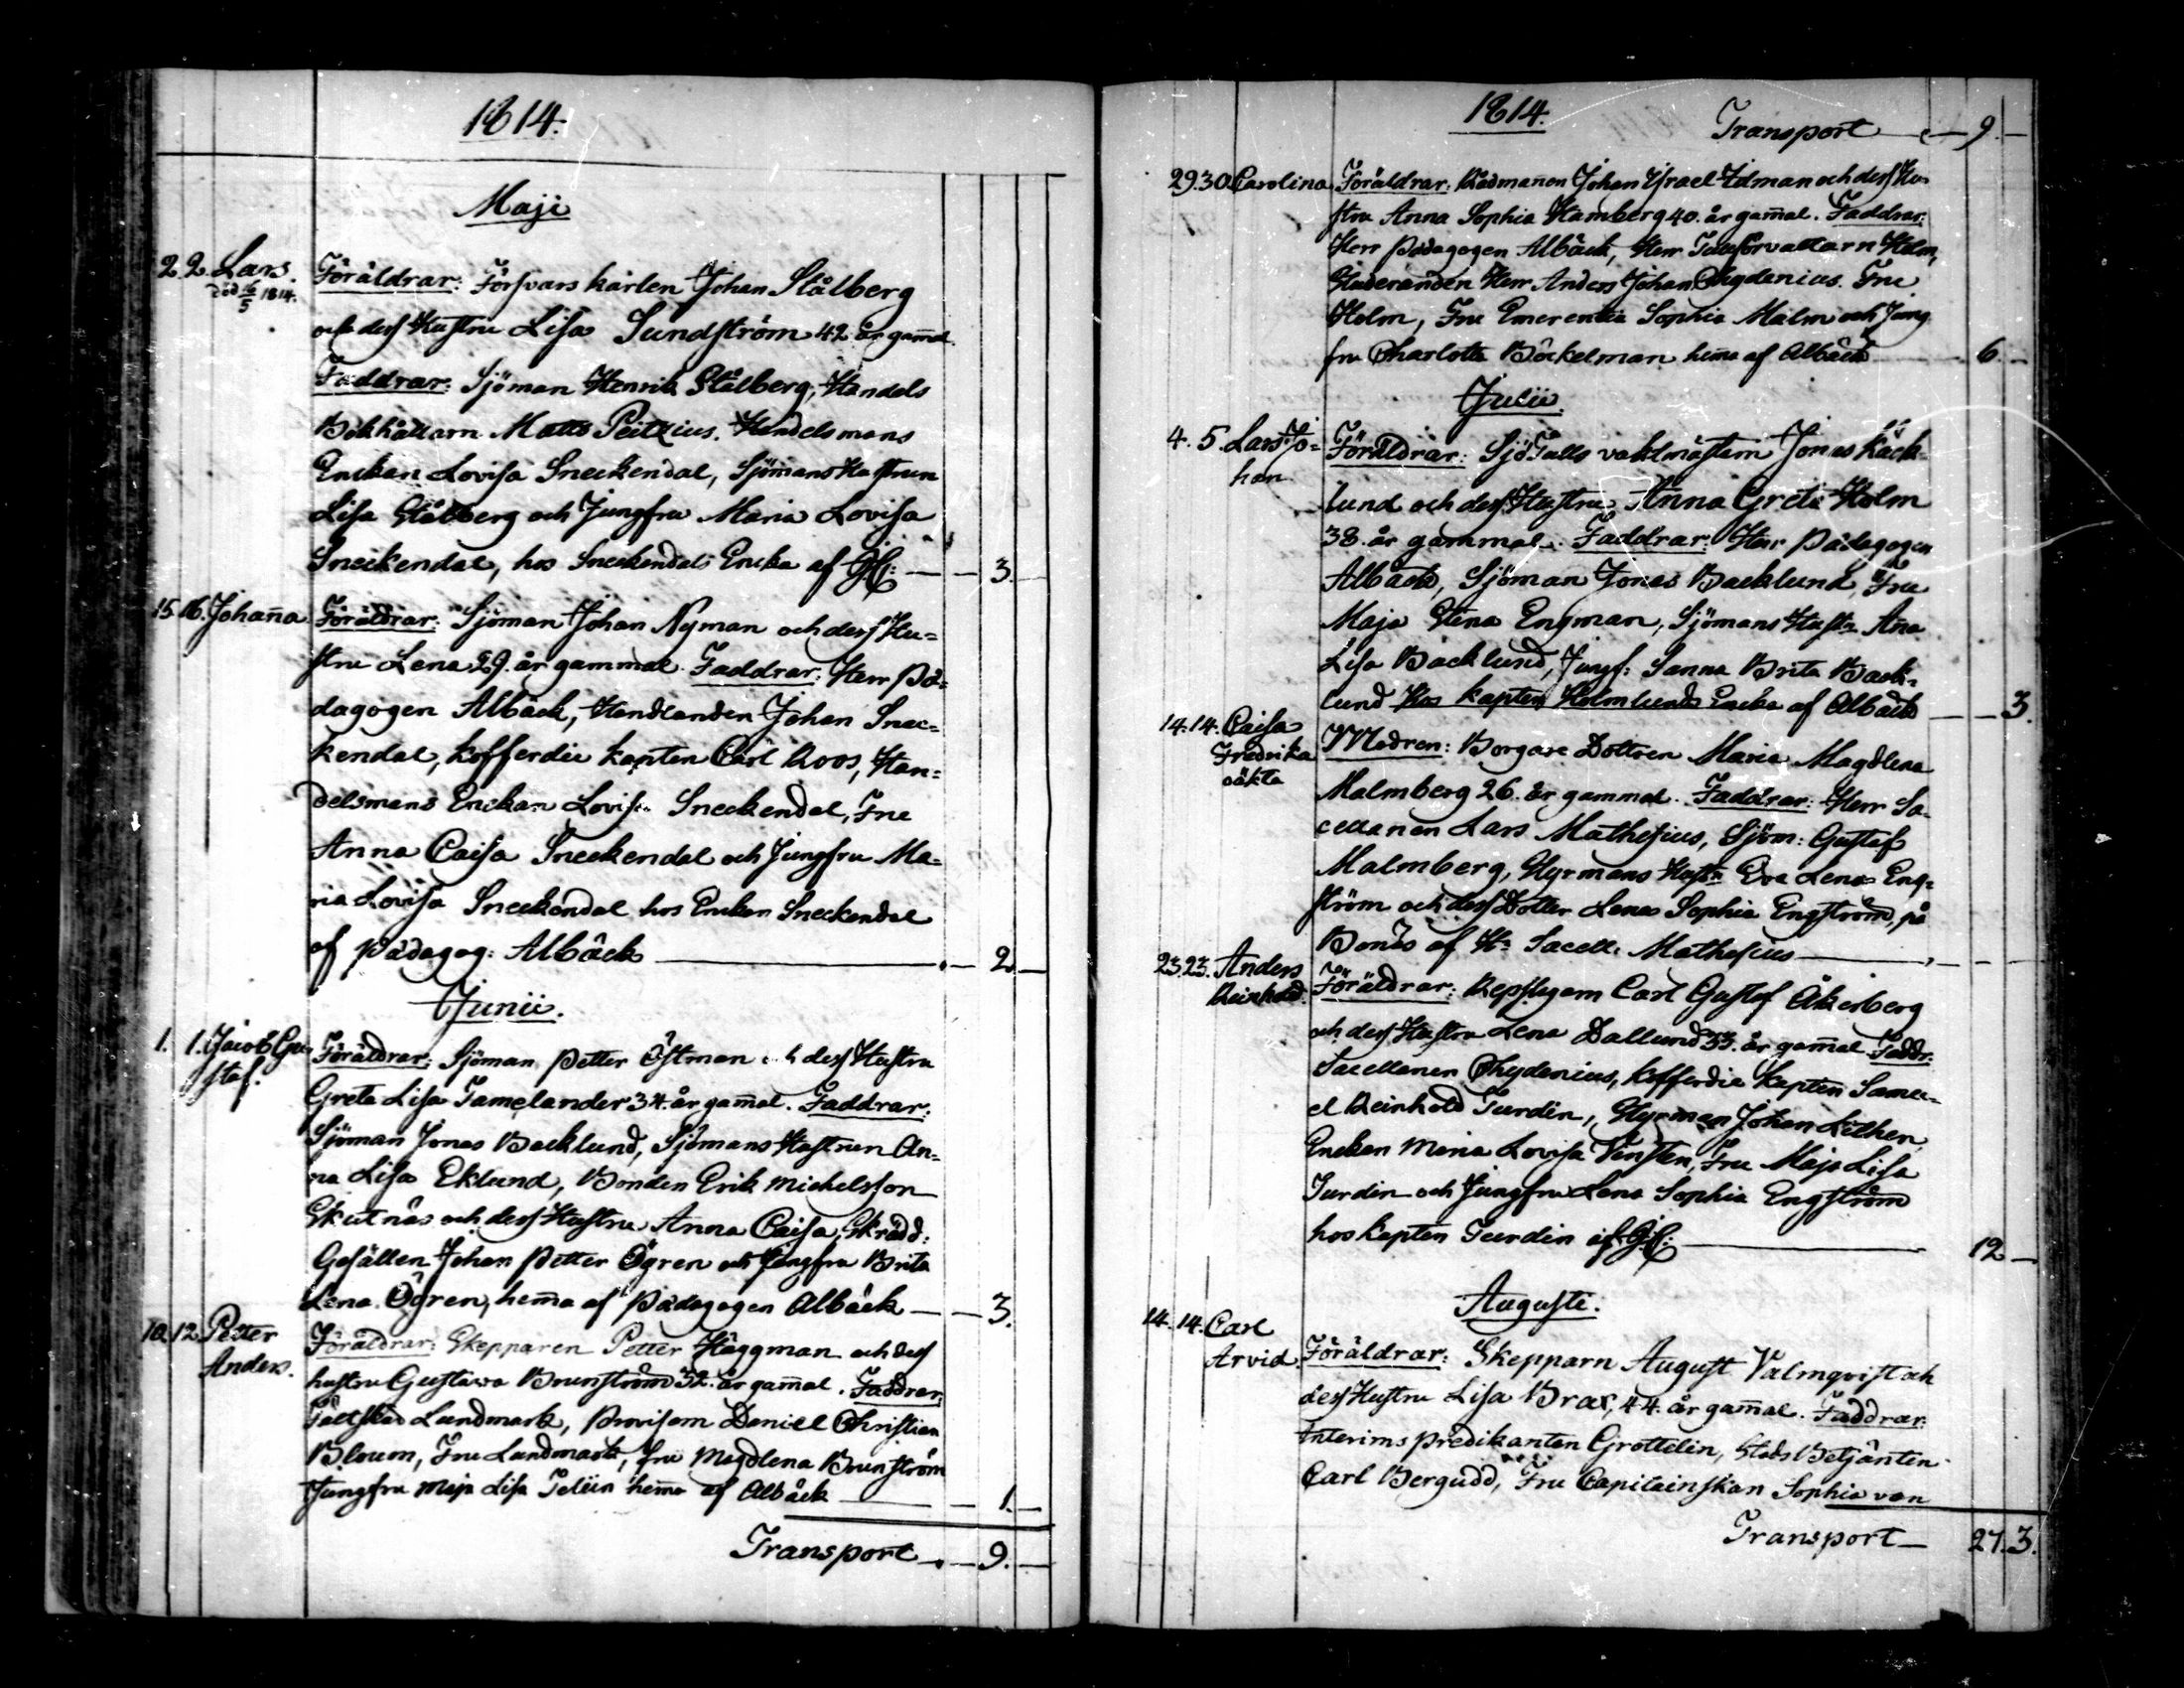 1814.
Maji
2. 2. Lars. Föräldrar: Försvars karlen Johan Stålberg
död 16/5 1814. och dess Hustru Lisa Sundström 42 år gam̄al.
Faddrar: Sjöman Henrik Stålberg, Handels
Bokhållarn Matts Peitzius. Handelsmans
Enckan Lovisa Sneckendal, Sjömans Hustrun
Lisa Stålberg och Jungfru Maria Lovisa
Sneckendal, hos Sneckendals Encka af — 3.
15. 16. Johan̄a Föräldrar: Sjöman Johan Nyman och dess Hu=
stru Lena 29. år gammal. Faddrar: Herr Pä=
dagogen Albäck, Handlanden Johan Snec=
kendal, Kofferdie kapten Carl Roos, Han=
delsmans Enckan Lovisa Sneckendal, Fru
Anna Caisa Sneckendal och Jungfru Ma=
ria Lovisa Sneckendal hos Enckan Sneckendal
af Pädagog: Albäck — 2. —
Junii.
1. 1. Jacob Gu= Föräldrar: Sjöman Petter Östman och dess Hustru
staf. Greta Lisa Tamelander 34. år gam̄al. Faddrar:
Sjöman Jonas Backlund, Sjömans Hustrun An=
na Lisa Eklund, Bonden Erik Michelsson
Skutnäs och dess Hustru Anna Caisa, Skrädd:
Gesällen Johan Petter Ögren och Jungfru Brita
Lena Ögren, hem̄a af Pädagogen Albäck — 3.
10. 12. Petter Föräldrar: Skepparen Petter Häggman och dess
Anders. hustru Gustava Brunström 32. år gam̄al. Faddrar:
Fältskär Lundmark, Provisorn Daniel Christian
Bloum, Fru Lundmark, fru Magdlena Brunström
Jungfru Maja Lisa Telin hem̄a af Albäck — 1. —
Transport — 9. —
1814. Transport — 9. —
29. 30. Carolina Föräldrar: Rådman̄en Johan Israel Idman och dess Hu=
stru Anna Sophia Stamberg 40. år gam̄al. Faddrar:
Herr Pädagogen Albäck, Herr Tullförvaltarn Holm,
Studeranden Herr Anders Johan Chydenius. Fru
Holm, Fru Emerentia Sophia Malm och Jung
fru Charlotta Böckelman hem̄a af Albäck — 6. —
Julii.
4. 5. Lars Jo= Föräldrar: SjöTulls vaktmästarn Jonas Käck=
han lund och dess Hustru Anna Greta Holm
38. år gammal. Faddrar: Herr Pädagogen
Albäck, Sjöman Jonas Backlund, Fru
Maja Stina Engman, Sjömans Hustr. An̄a
Lisa Backlund, Jungf: Sanna Brita Back=
lund Hos kapten Holmlunds Encka af Albäck — 3.
14. 14. Caisa Modren: Borgare Dottren Maria Magdlena
Fredrika Malmberg 26. år gammal. Faddrar: Herr Sa=
oäkta cellanen Lars Mathesius, Sjöm: Gustaf
Malmberg, Styrmans Hustr Eva Lena Eng=
ström och dess Dotter Lena Sophia Engström, på
Bonäs af Hr Sacell: Mathesius —
23. 23. Anders Föräldrar: Repslagarn Carl Gustaf Åkerberg
Reinhold. och dess Hustru Lena Dallund 33. år gam̄al. Faddr:
Sacellanen Chydenius, Kofferdie kapten Samu=
el Reinhold Turdin, Styrman Johan Lithen,
Enckan Maria Lovisa Vensten, Fru Maja Lisa
Turdin och Jungfru Lena Sophia Engström
hos kapten Turdin af — 12 —
Augusti.
14. 14. Carl Föräldrar: Skepparn August Valmqvist och
Arvid dess Hustru Lisa Brax, 44. år gam̄al. Faddrar:
Interims predikanten Grottelin, Stads Betjänten
Carl Bergudd, Fru Capitainskan Sophia von
Transport — 27. 3.